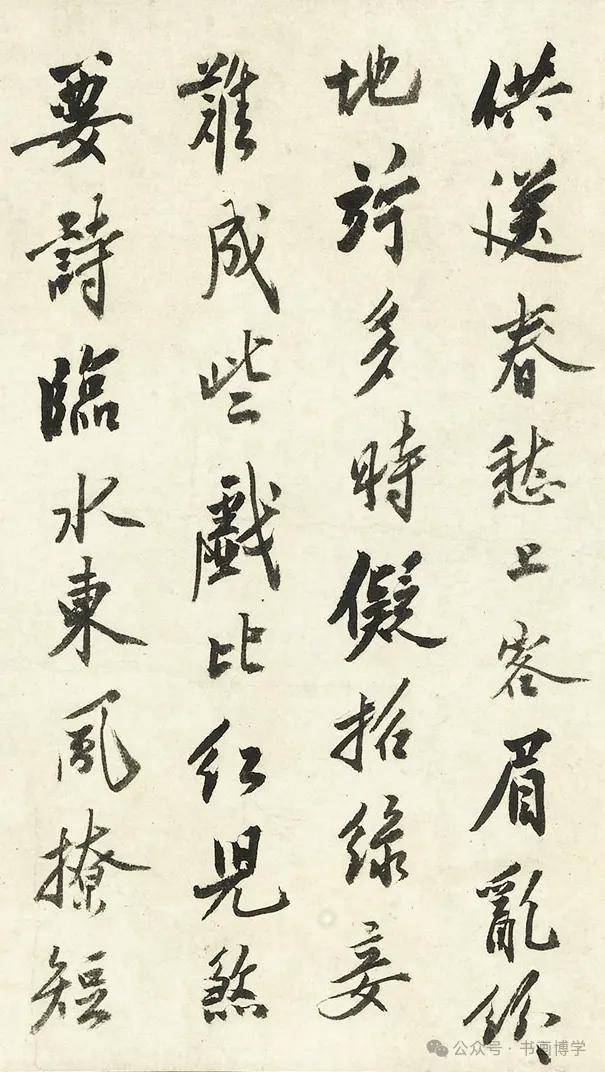 供送春愁上客眉亂紛〻
地竚多時儗招綠妾
難成些戲比紅兒煞
要詩臨水東風撩短
公众号 · 书画博学